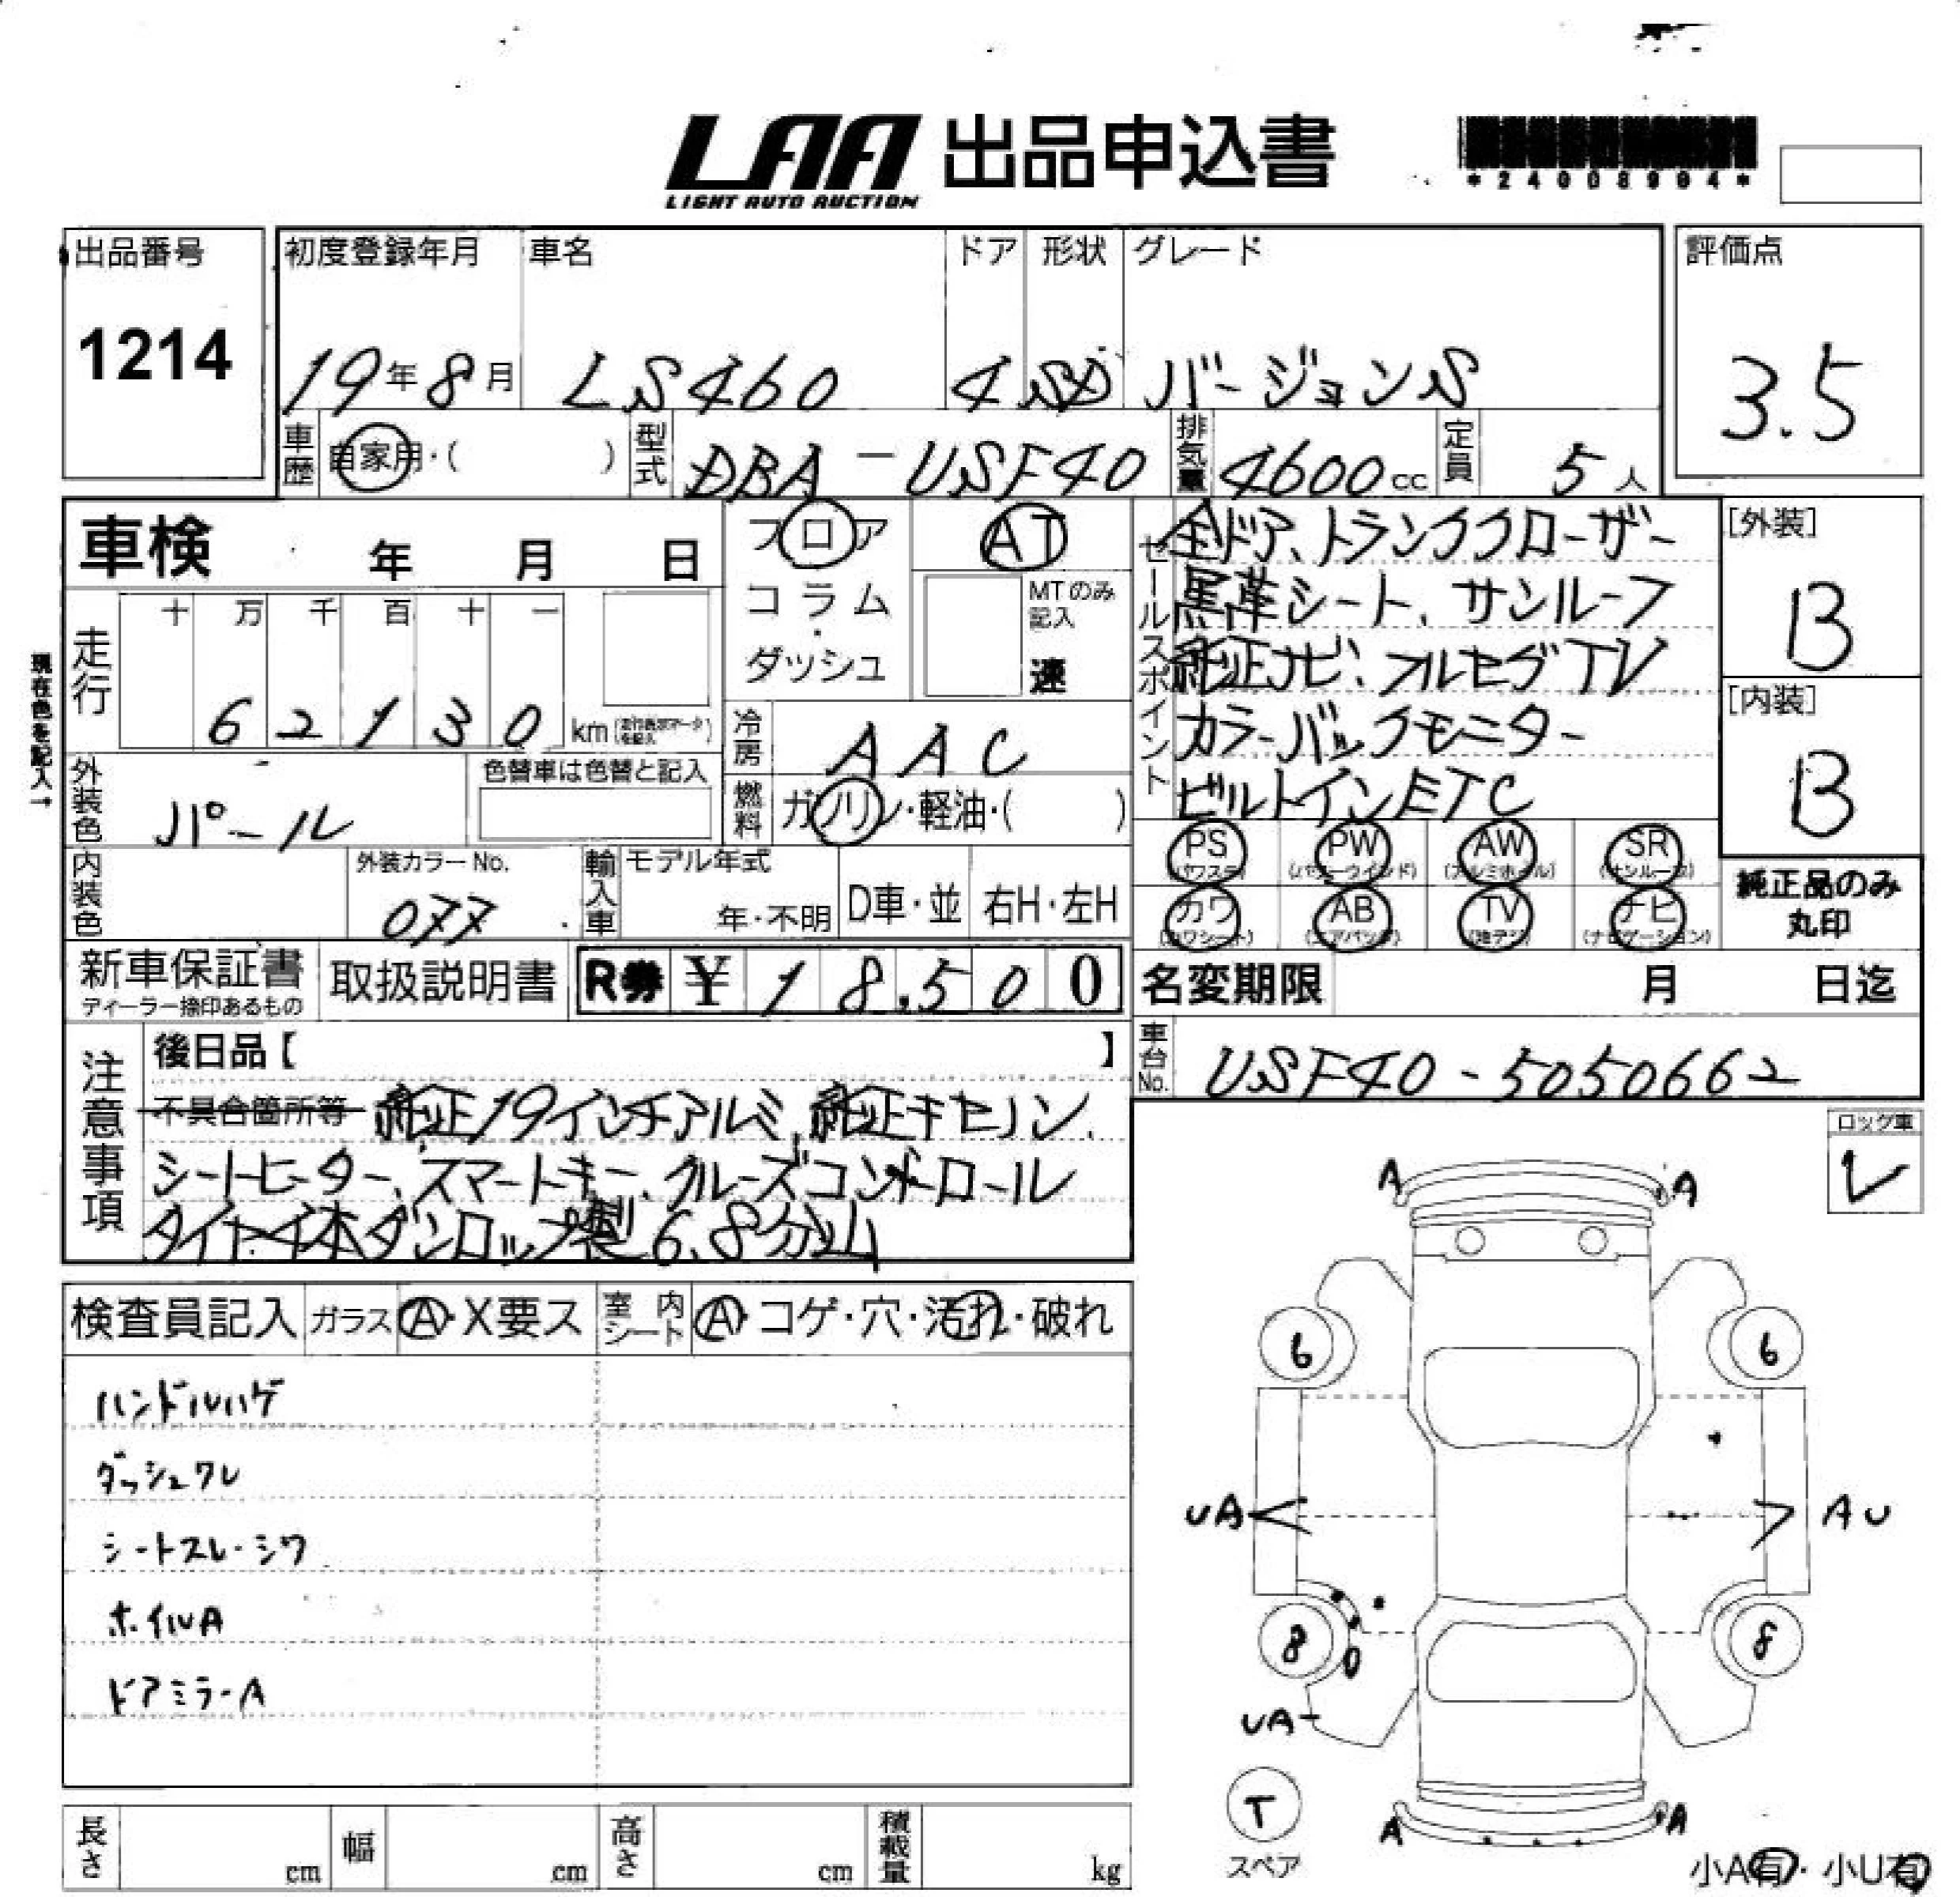 LAA 出品申込書
LIGHT AUTO AUCTION
*24008904*
出品番号
1214
初度登録年月 車名 ドア 形状 グレード
19年8月 LS460 4 SD バージョンS
評価点
3.5
車歴 自家用・( ) 型式 DBA-USF40 排気量 4600cc 定員 5人
車検 年 月 日
フロア
コラム
・
ダッシュ
AT
MTのみ記入
速
セールスポイント
全ドア、トランククローザー
黒革シート、サンルーフ
純正ナビ、フルセグTV
カラーバックモニター
ビルトインETC
[外装]
B
[内装]
B
現在色を記入→
走行
十 万 千 百 十 一
6 2 1 3 0 km
冷房 AAC
燃料 ガソリン・軽油・( )
外装色 パール
色替車は色替と記入
内装色
外装カラーNo.
077
輸入車 モデル年式
年・不明 D車・並 右H・左H
PS PW AW SR
(パワステ) (パワーウインド) (アルミホイル) (サンルーフ)
カワ AB TV ナビ
(カワシート) (エアバッグ) (地デジ) (ナビゲーション)
純正品のみ
丸印
新車保証書
ディーラー捺印あるもの
取扱説明書
R券 ¥ 18,500
名変期限 月 日迄
車台No. USF40-5050662
注意事項
後日品【 】
不具合箇所等 純正19インチアルミ、純正キセノン、
シートヒーター、スマートキー、クルーズコントロール
タイヤ4本ダンロップ製6.8分山
ロック車
レ
検査員記入 ガラス A・X要ス 室内シート A・コゲ・穴・汚れ・破れ
ハンドルハゲ
ダッシュワレ
シートスレ・シワ
ホイルA
ドアミラーA
A A
6 6
UA AU
8 8
UA
T
スペア
A A
小A有・小U有
長さ cm 幅 cm 高さ cm 積載量 kg